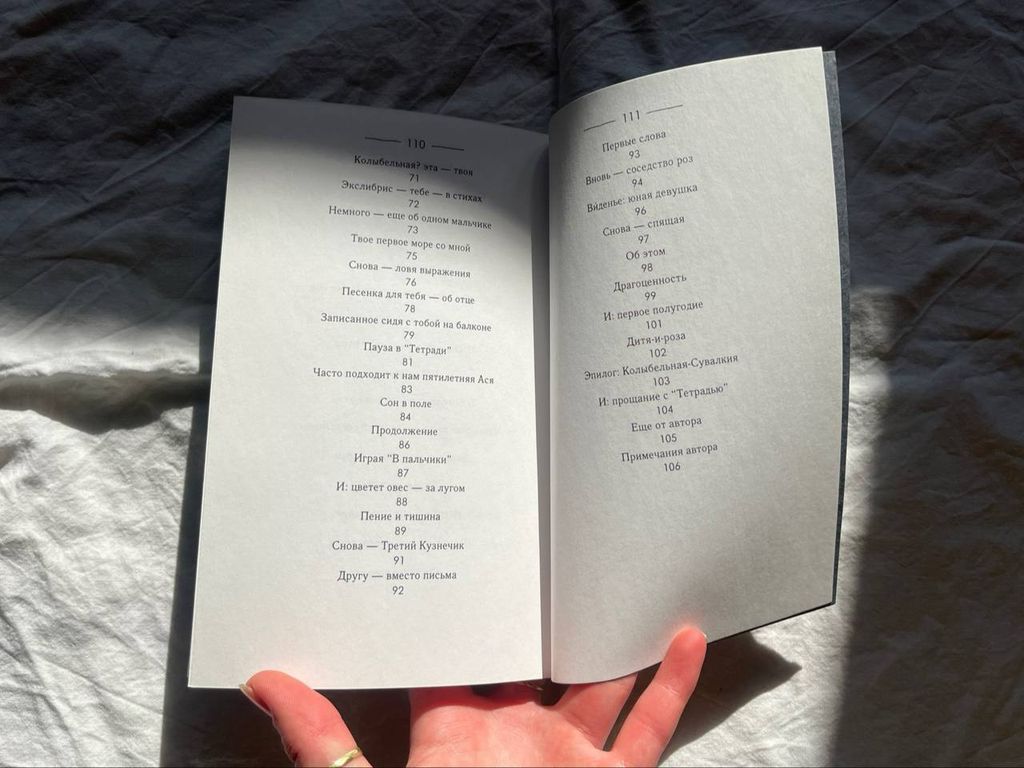 110
Колыбельная? эта — твоя
71
Экслибрис — тебе — в стихах
72
Немного — еще об одном мальчике
73
Твое первое море со мной
75
Снова — ловя выражения
76
Песенка для тебя — об отце
78
Записанное сидя с тобой на балконе
79
Пауза в "Тетради"
81
Часто подходит к нам пятилетняя Ася
83
Сон в поле
84
Продолжение
86
Играя "В пальчики"
87
И: цветет овес — за лугом
88
Пение и тишина
89
Снова — Третий Кузнечик
91
Другу — вместо письма
92
111
Первые слова
93
Вновь — соседство роз
94
Виденье: юная девушка
96
Снова — спящая
97
Об этом
98
Драгоценность
99
И: первое полугодие
101
Дитя-и-роза
102
Эпилог: Колыбельная-Сувалкия
103
И: прощание с "Тетрадью"
104
Еще от автора
105
Примечания автора
106